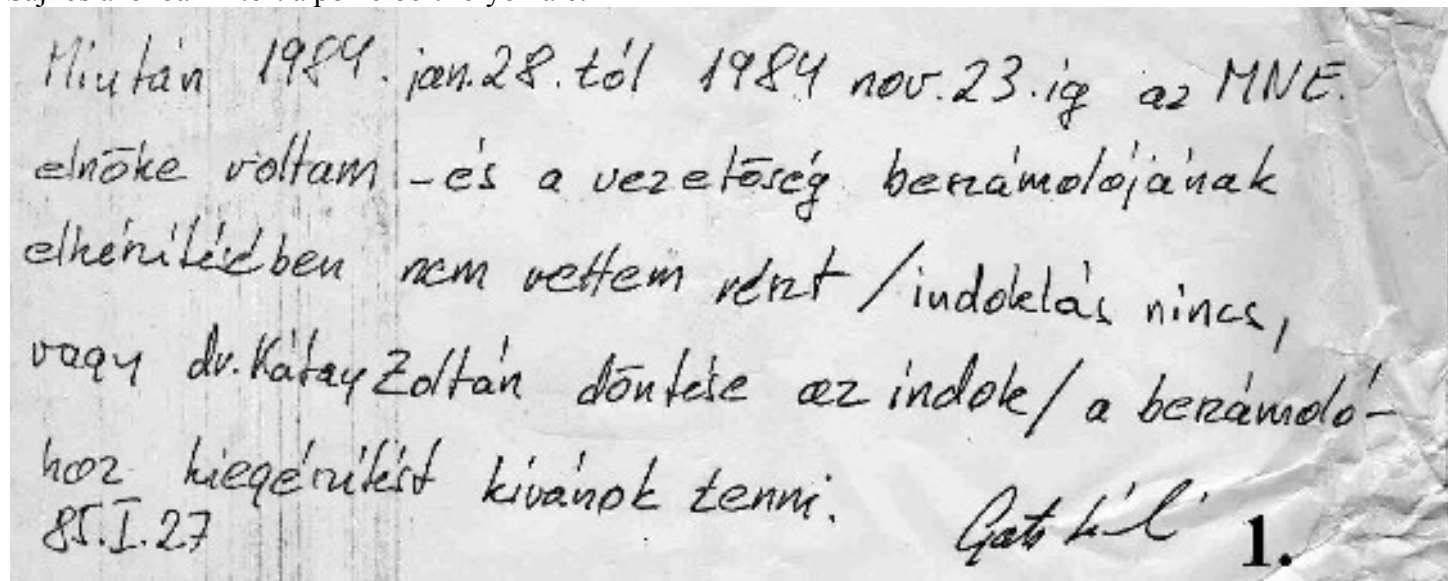 Miután 1984. jan. 28. tól 1984 nov. 23. ig az MNE.
elnöke voltam - és a vezetőség beszámolójának
elkészitésében nem vettem részt / indoklás nincs,
vagy dr. Kátay Zoltán döntése az indok / a beszámoló-
hoz kiegészitést kivánok tenni.
85. I. 27
1.